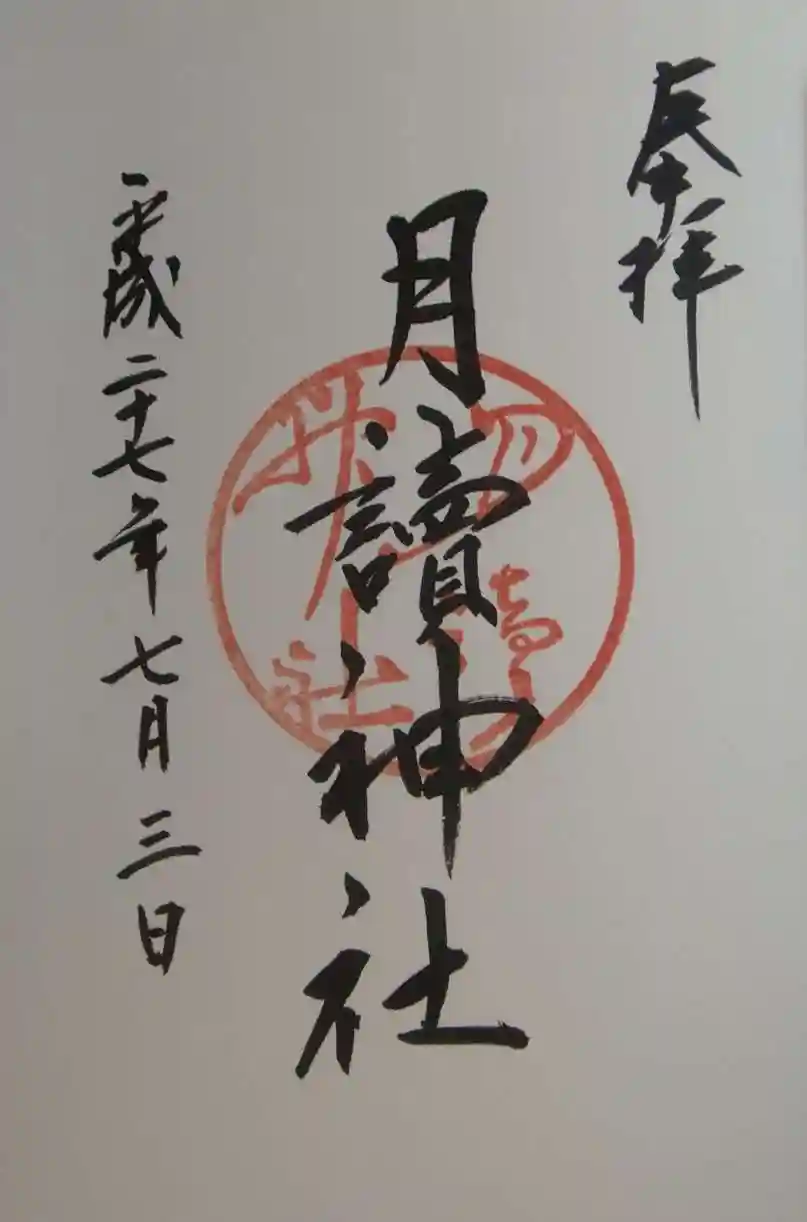 奉拝
月讀神社
平成二十七年七月三日